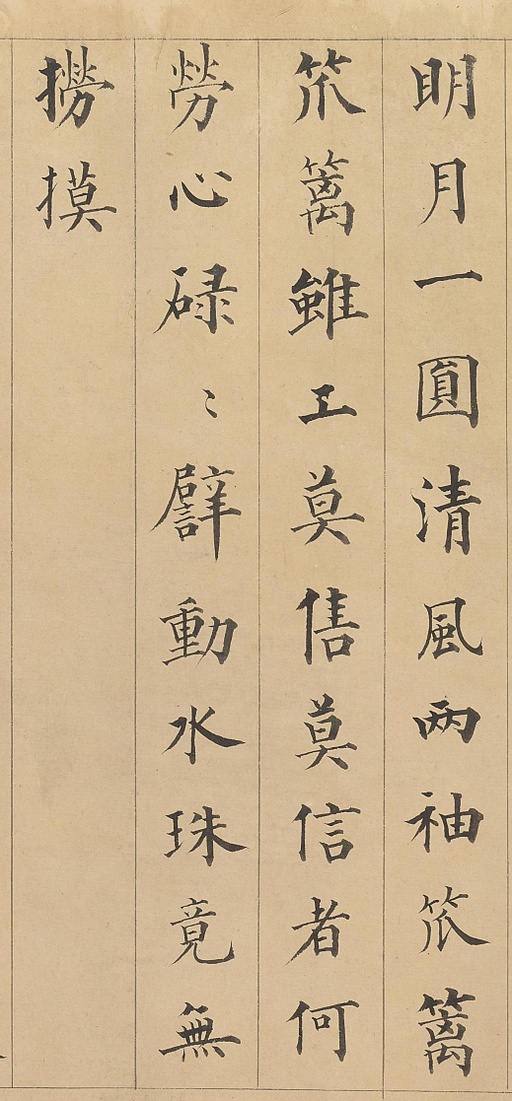 明月一圓清風两袖笊篱
笊篱雖工莫售莫信者何
勞心碌〻譬動水珠竟無
撈摸